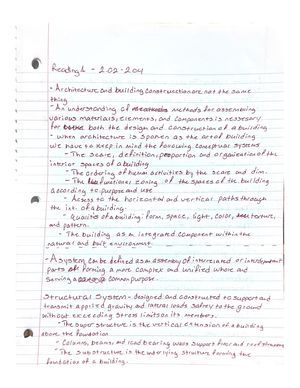 Reading 1 - 2.02-2.04
- Architecture and building construction are not the same
thing
- An understanding of methods for assembling
various materials, elements, and components is nessesary
for both the design and construction of a building
- When architecture is spoken as the art of building
we have to keep in mind the following conceptual systems
- The scare, definition, proportion and organization of the
interior spaces of a building
- The ordering of human activities by the scare and dim.
- The functional zoning of the spaces of the building
according to purpose and use
- Access to the horizontal and vertical paths through
the int. of a building.
- Qualities of a building: form, space, light, color, texture,
and pattern.
- The building as an integrated component within the
natural and built environment
- A system can be defined as an assembly of interrelated or interdependent
parts forming a more complex and unified whole and
serving a common purpose.
Structural System - designed and constructed to support and
transmit applied gravity and lateral loads safely to the ground
without exceeding stress limits on its members.
- The superstructure is the vertical extension of a building
above the foundation
- Columns, beams, and load bearing walls support floor and roof structures
- The substructure is the underlying structure forming the
foundation of a building.